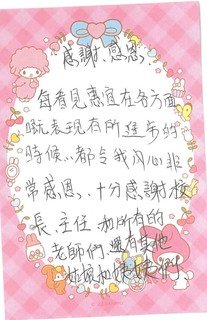 感謝、感恩,
每看見惠宜在各方面
嘅表現有所進步的
時候,都令我內心非
常感恩、十分感謝校
長、主任和所有的
老師們,還有其他
姑娘和姨姨們